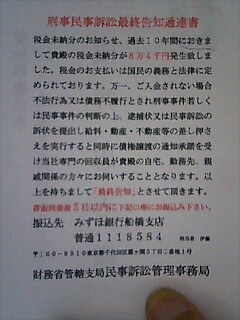 刑事民事訴訟最終告知通達書
税金未納分のお知らせ、過去10年間におきまし
て貴殿の税金未納分が8万4千円発生致しまし
た。税金のお支払いは国民の義務と法律に定め
られております。万一、ご入金されない場合
不法行為又は債務不履行とされ刑事事件若しく
は民事事件の判断の上、逮捕状又は民事訴訟の
訴状を提出し給料・動産・不動産等の差し押さ
えを実行すると同時に債権譲渡の通知承諾を受
け当社専門の回収員が貴殿の自宅、勤務先、親
戚関係の方々にお伺いすることとなります。以
上を持ちまして「最終告知」とさせて頂きます。
書面到着後5日以内に下記口座にお振込み下さい。
振込先 みずほ銀行船橋支店
普通1118584 担当者 伊藤
〒100-8910東京都千代田区霞ヶ関3丁目1番地1号
財務省管轄支局民事訴訟管理事務局